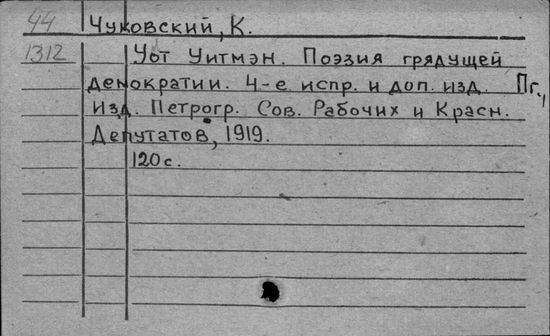 44 Чуковский, К.
1312 Уот Уитмэн. Поэзия грядущей
демократии. 4-е испр. и доп. изд. Пг.,
изд. Петрогр. Сов. Рабочих и Красн.
Депутатов, 1919.
120 с.